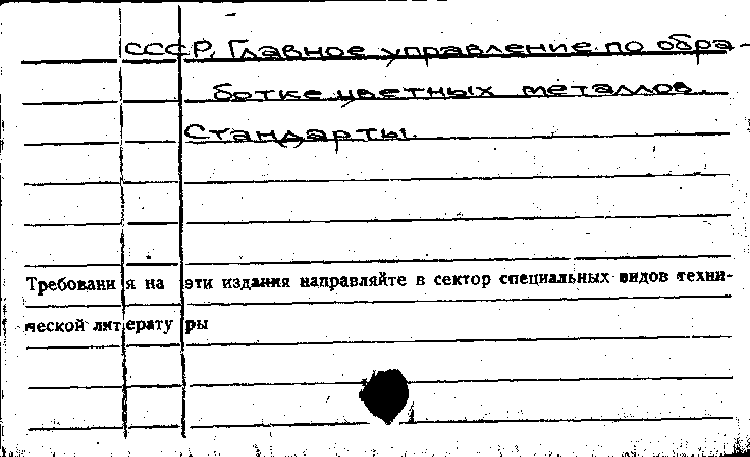 СССР. Главное управление по обра-
ботке цветных металлов.
Стандарты.
Требования на эти издания направляйте в сектор специальных видов техни-
ческой литературы